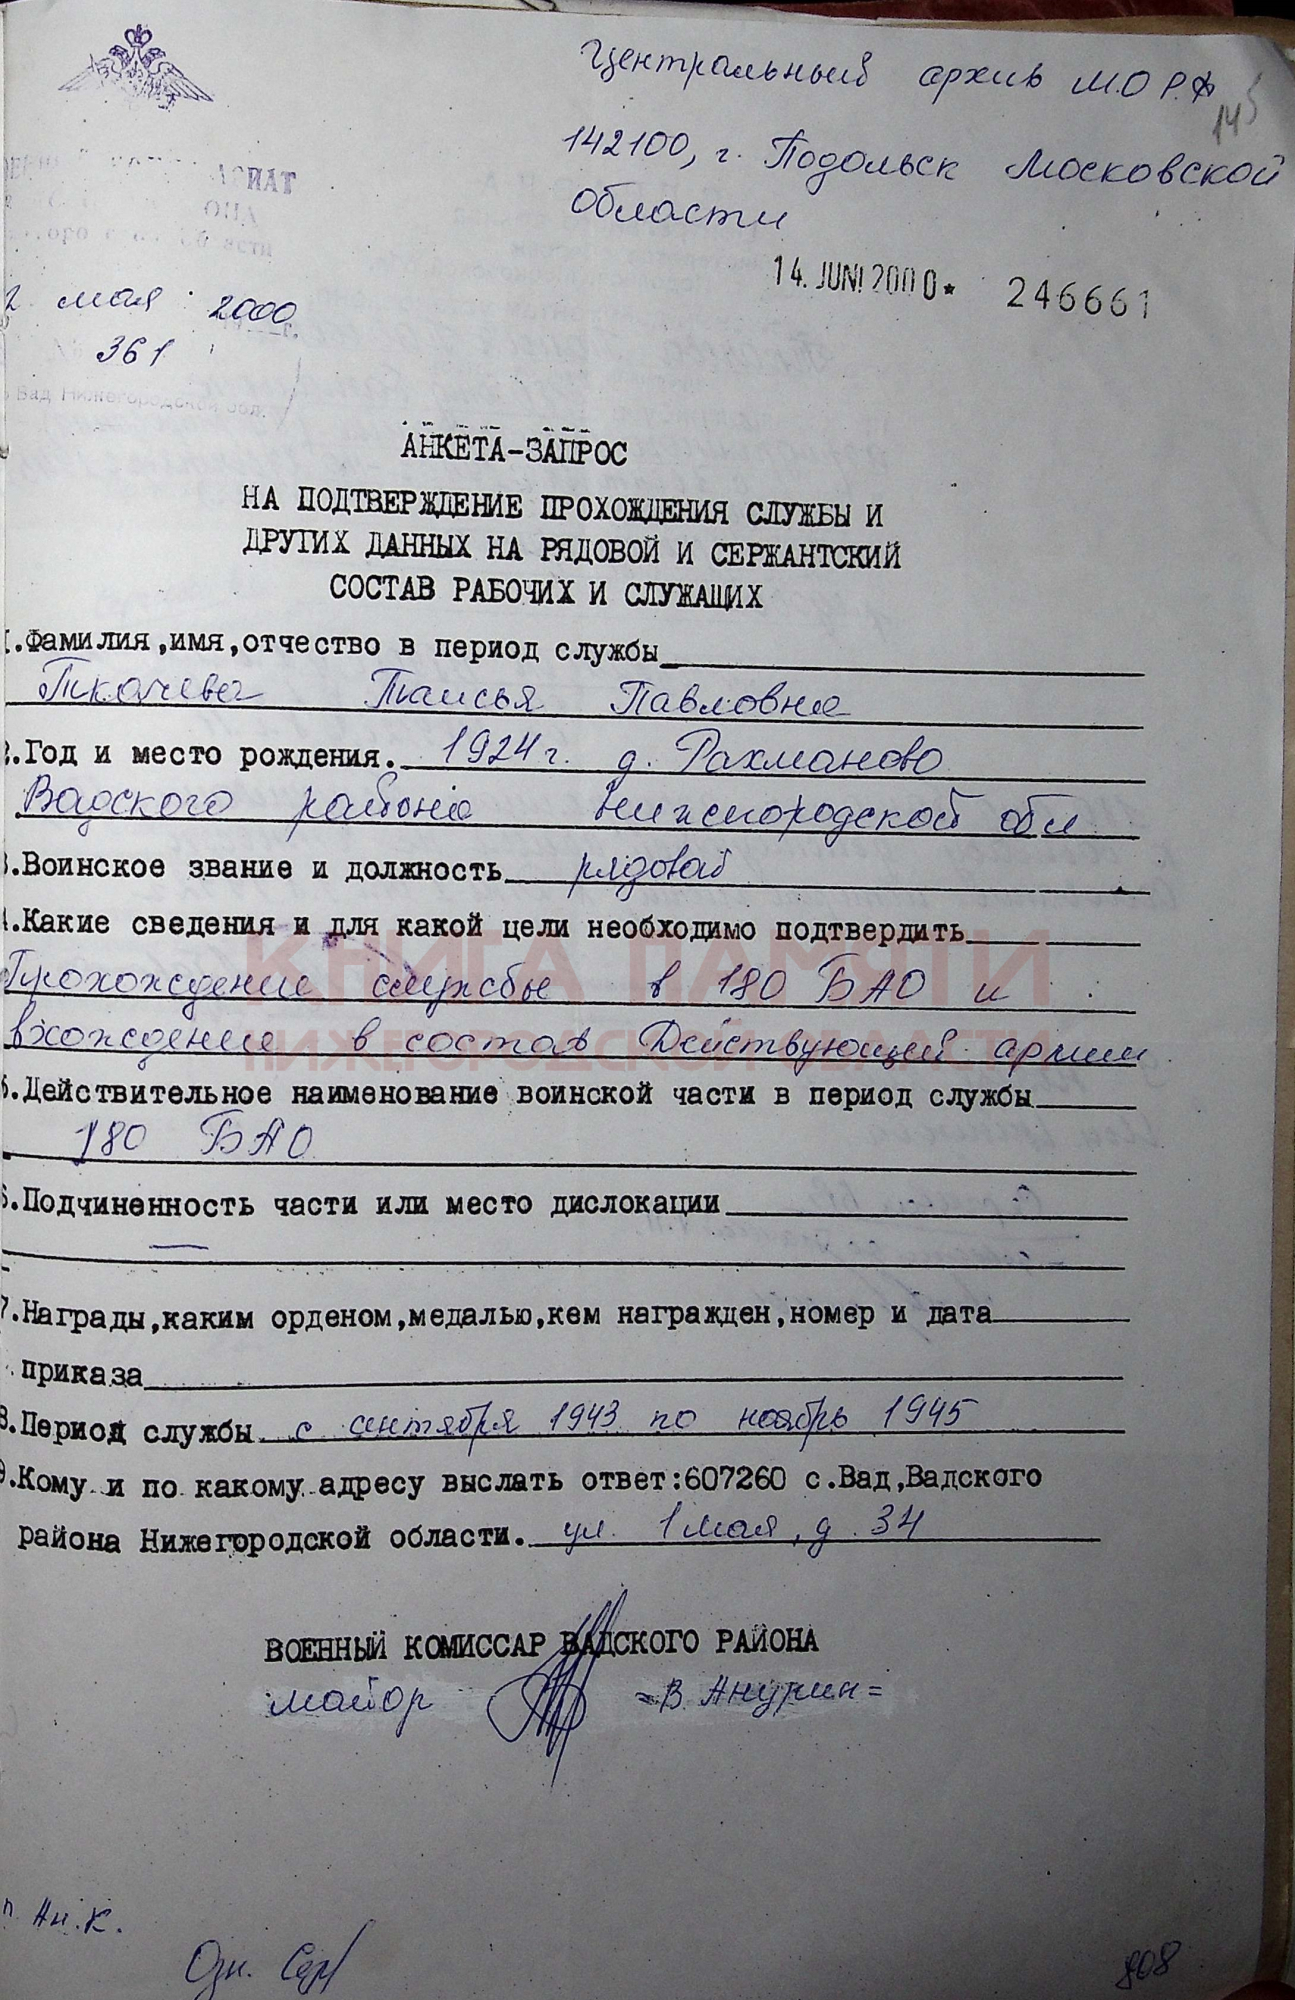 Центральный архив М.О Р.Ф
145
142100, г. Подольск Московской
области
АРИАТ
ОНА
области
14. JUNI 2000* 246661
2 мая 2000
г.
361
Вад Нижегородской обл.
АНКЕТА-ЗАПРОС
НА ПОДТВЕРЖДЕНИЕ ПРОХОЖДЕНИЯ СЛУЖБЫ И
ДРУГИХ ДАННЫХ НА РЯДОВОЙ И СЕРЖАНТСКИЙ
СОСТАВ РАБОЧИХ И СЛУЖАЩИХ
1.Фамилия,имя,отчество в период службы
Ткачева Таисья Павловна
2.Год и место рождения. 1924г. д. Рахманово
Вадского района Нижегородской обл
3.Воинское звание и должность рядовой
4.Какие сведения и для какой цели необходимо подтвердить
КНИГА ПАМЯТИ
Прохождение службы в 180 БАО и
НИЖЕГОРОДСКОЙ ОБЛАСТИ
вхождение в состав Действующей армии
5.Действительное наименование воинской части в период службы
180 БАО
6.Подчиненность части или место дислокации
7.Награды,каким орденом,медалью,кем награжден,номер и дата
приказа
8.Период службы с сентября 1943 по ноябрь 1945
9.Кому и по какому адресу выслать ответ:607260 с.Вад,Вадского
района Нижегородской области. ул. 1 мая, д. 34
ВОЕННЫЙ КОМИССАР ВАДСКОГО РАЙОНА
майор =В Анурин=
п Ан.К.
808